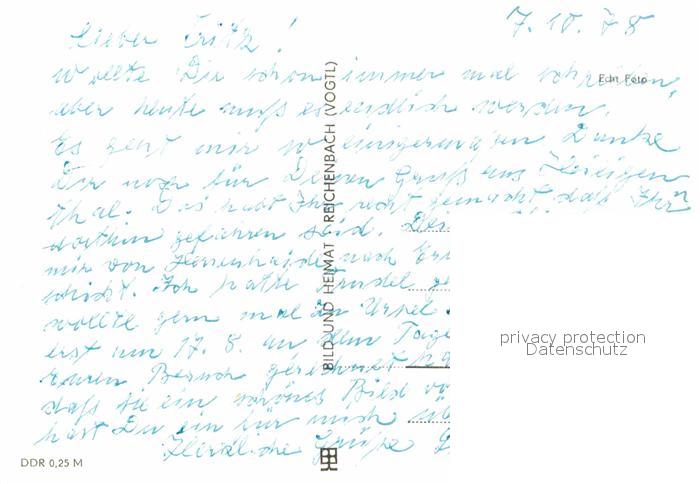 7.10.78
Lieber Fritz!
Echt Foto
wollte Dir schon immer mal schreiben,
aber heute muß es endlich werden.
Es geht mir so einigermaßen Danke
Dir noch für Deinen Gruß aus Heiligen
thal. Das habt Ihr recht gemacht daß Ihr
dorthin gefahren seid.
mir von nach
schickt. Ich hatte Trudel
wollte gern mal zu Ursel
erst am 17. 8. an dem Tage
Euren Besuch gerechnet
daß sie ein schönes Bild
hast Du ein für mich
Herzliche Grüße
BILD UND HEIMAT REICHENBACH (VOGTL)
privacy protection
Datenschutz
DDR 0,25 M